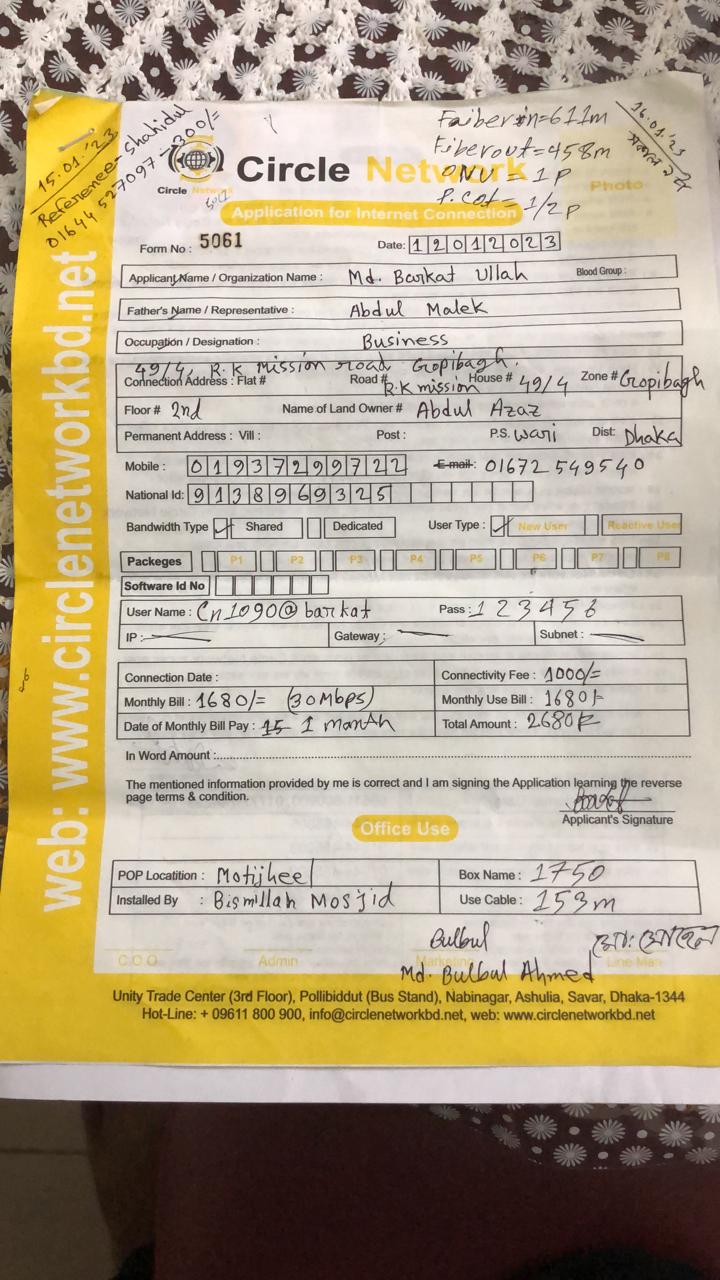 15.01.'23
Reference - Shahidul
01644 527097 - 300/=
Faiber in = 611m
Fiber out = 458m
ONU = 1P
P. Cot = 1/2 P
16.01.'23
Circle Network
Circle Network
Photo
Application for Internet Connection
Form No : 5061
Date: 12012023
Applicant Name / Organization Name : Md. Barkat Ullah Blood Group :
Father's Name / Representative : Abdul Malek
Occupation / Designation : Business
49/4, R.K mission road Gopibagh.
Connection Address : Flat # Road # R.K mission House # 49/4 Zone # Gropibagh
Floor # 2nd Name of Land Owner # Abdul Azaz
Permanent Address : Vill : Post : P.S. wari Dist: Dhaka
Mobile : 01937299722 E-mail: 01672 549540
National Id: 9138969325
Bandwidth Type Shared Dedicated User Type : New User Reactive User
Packeges P1 P2 P3 P4 P5 P6 P7 P8
Software Id No
User Name : Cn1090@barkat Pass : 123456
IP : Gateway : Subnet :
Connection Date : Connectivity Fee : 1000/=
Monthly Bill : 1680/= (30Mbps) Monthly Use Bill : 1680/-
Date of Monthly Bill Pay : 15 1 manth Total Amount : 2680/-
In Word Amount :
The mentioned information provided by me is correct and I am signing the Application learning the reverse
page terms & condition.
Applicant's Signature
Office Use
POP Locatition : Motijheel Box Name : 1750
Installed By : Bismillah Mosjid Use Cable : 153m
Bulbul
C O O Admin Marketing Line Man
Md. Bulbul Ahmed
Unity Trade Center (3rd Floor), Pollibiddut (Bus Stand), Nabinagar, Ashulia, Savar, Dhaka-1344
Hot-Line: + 09611 800 900, info@circlenetworkbd.net, web: www.circlenetworkbd.net
web: www.circlenetworkbd.net